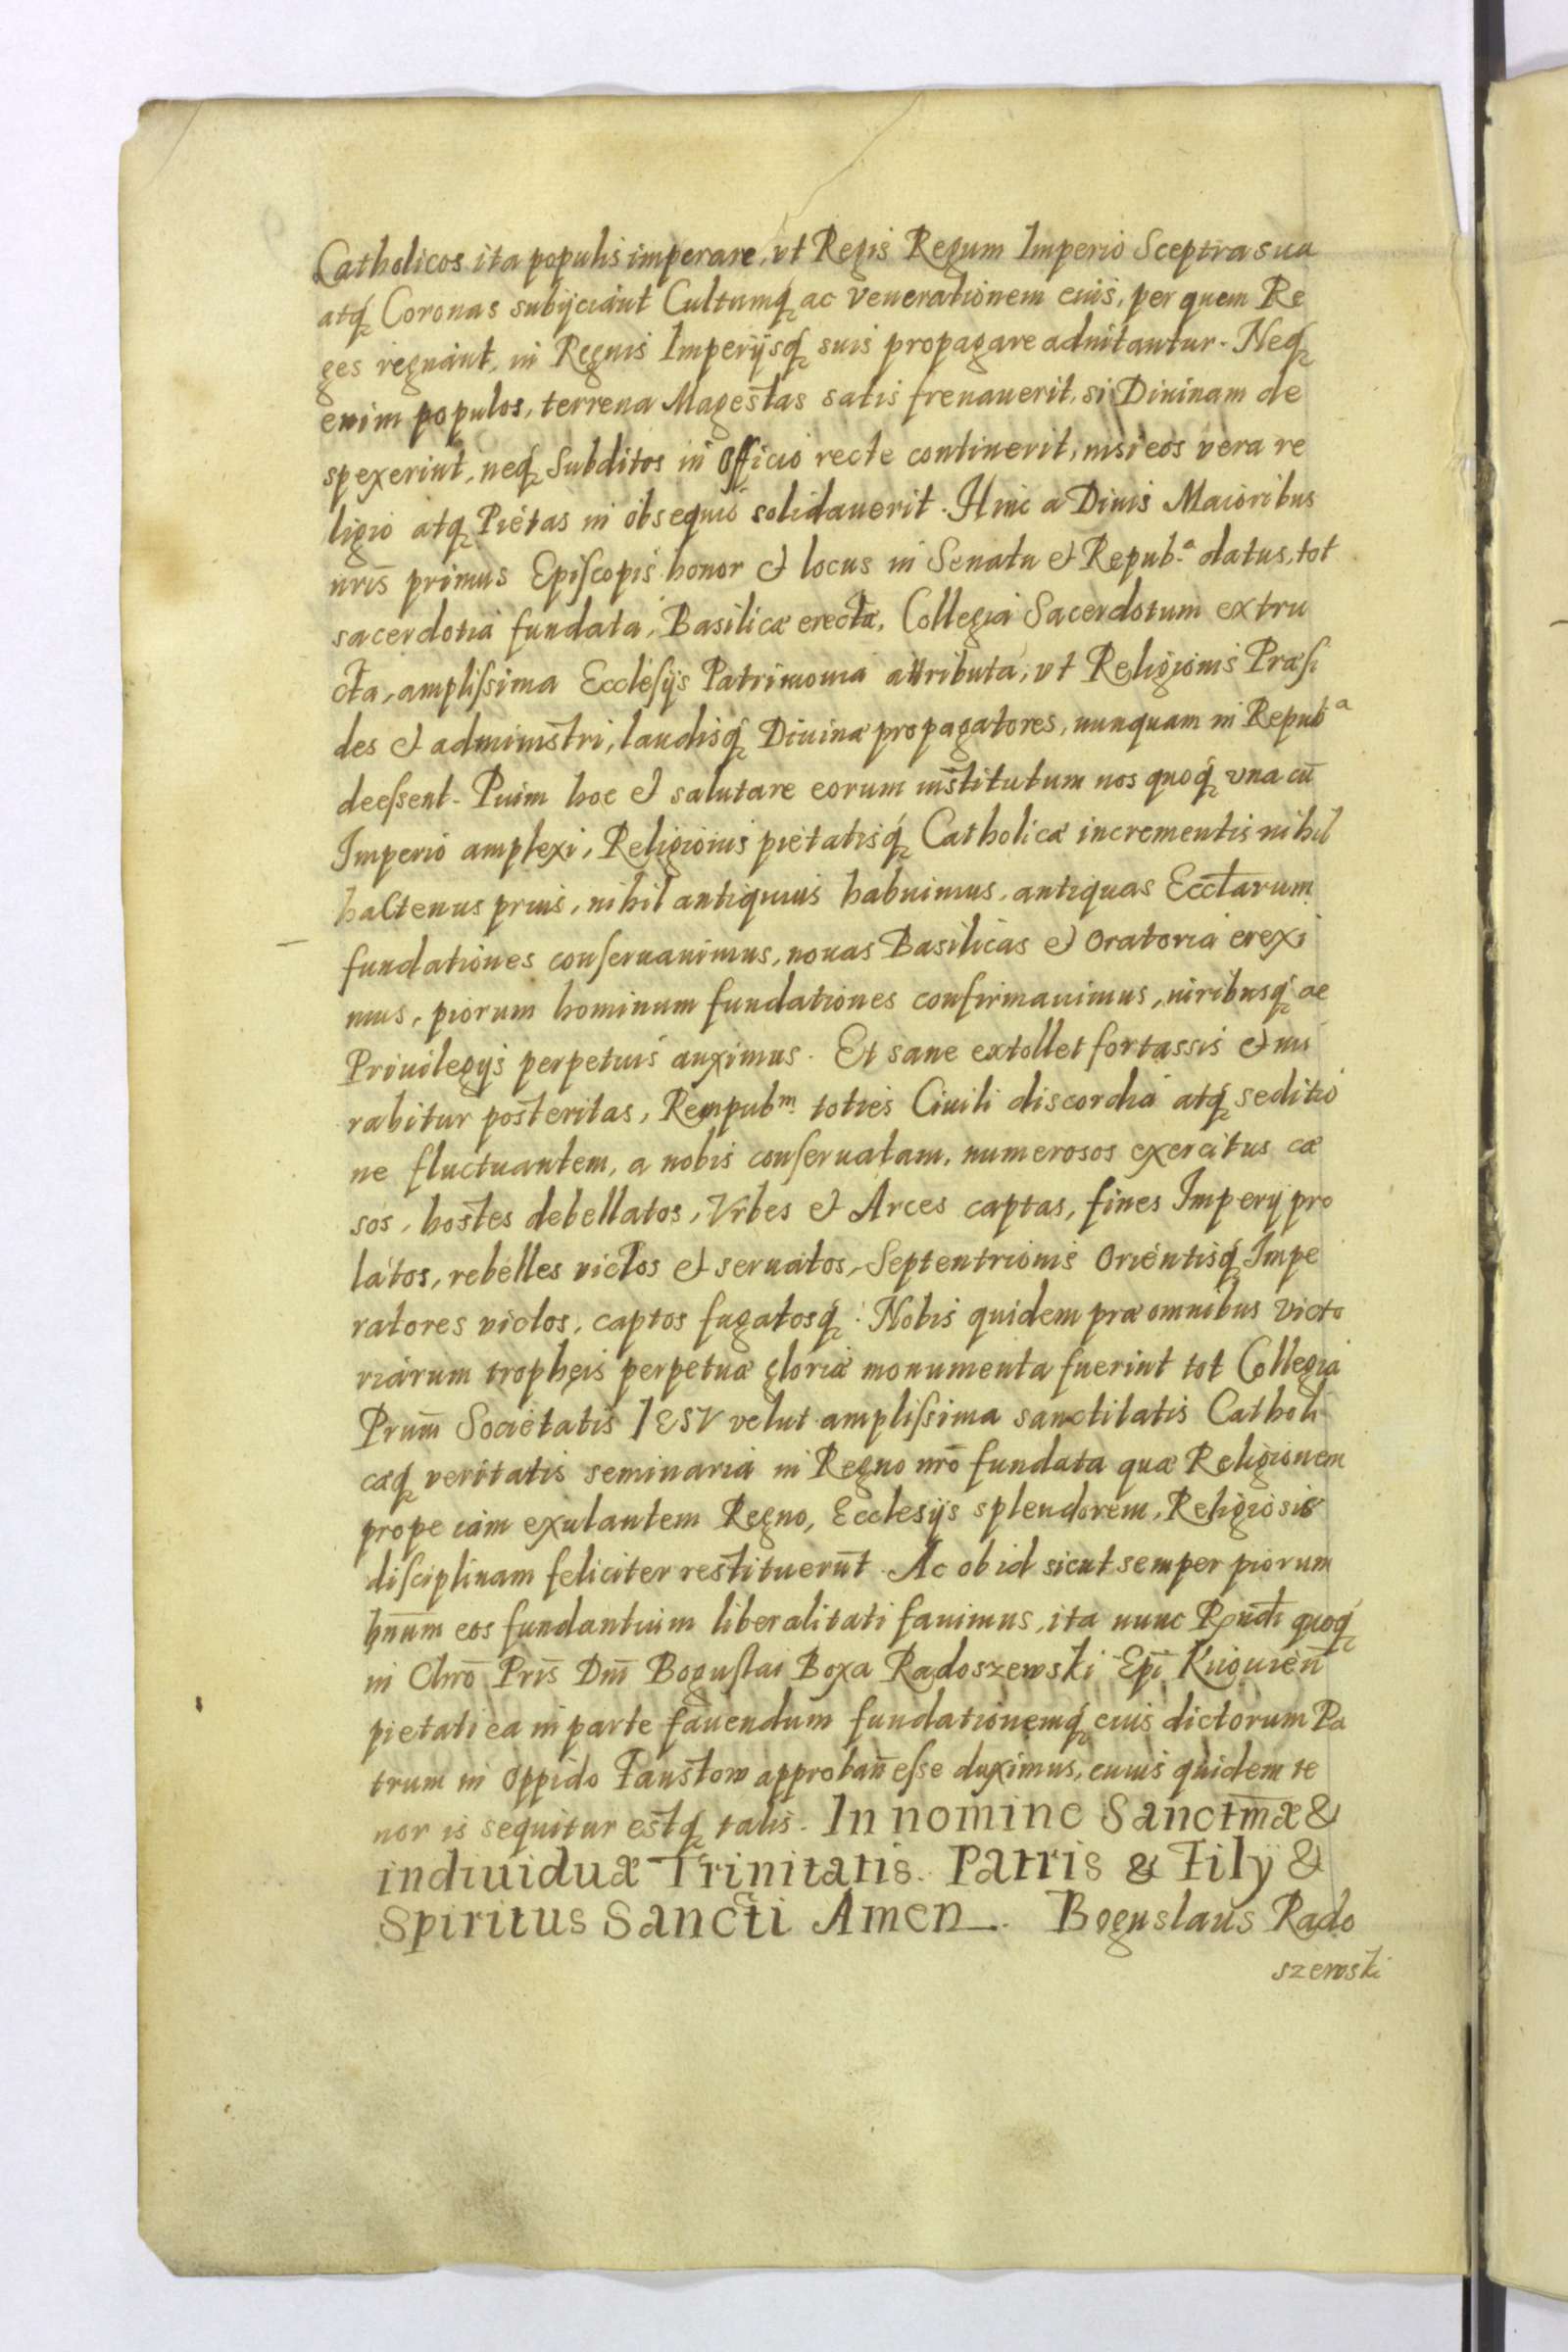 Catholicos ita populis imperare, vt Regis Regum Imperio Sceptra sua
atq́ Coronas subijciant Cultumq́ ac venerationem eius, per quem Re
ges regnant, in Regnis Imperijsq́ suis propagare adnitantur. Neq́
enim populos, terrena Magestas satis frenauerit, si Diuinam de
spexerint, neq́ Subditos in officio recte continerit, nisi eos vera re
ligio atq́ Pietas in obsequio solidauerit. Hinc a Diuis Maioribus
nris̄ primus Epiſcopis honor et locus in Senatu et Repub.ᵃ datus, tot
sacerdotia fundata, Basilicæ erectæ, Collegia Sacerdotum extru
cta, ampliſsima Eccleſijs Patrimonia attributa, vt Religionis Præſi
des et administri, laudisq́ Diuinæ propagatores, nunquam in Repubᵃ
deeſsent. Puim hoc et salutare eorum institutum nos quoq́ vna cū
Imperio amplexi, Religionis pietatisq́ Catholicæ incrementis nihil
hactenus prius, nihil antiquius habuimus, antiquas Eccl̄arum
fundationes conſeruauimus, nouas Basilicas et Oratoria erexi
mus, piorum hominum fundationes confirmauimus, uiribusq́ ac
Priuilegijs perpetuis auximus. Et sane extollet fortassis et mi
rabitur posteritas, Rempubᵐ. toties Ciuili discordia atq́ seditio
ne fluctuantem, a nobis conſeruatam, numerosos exercitus cæ
sos, hostes debellatos, Vrbes et Arces captas, fines Imperij pro
latos, rebelles victos et seruatos, Septentrionis Orientisq́ Impe
ratores victos, captos fugatosq́. Nobis quidem præ omnibus victo
riarum tropheis perpetuæ gloriæ monumenta fuerint tot Collegia
Prum̄ Societatis IESV velut ampliſsima sanctitatis Catholi
cæq́ veritatis seminaria in Regno nrō fundata quæ Religionem
prope iam exulantem Regno, Ecclesijs splendorem, Religiosis
diſciplinam feliciter restituerūt. Ac ob id sicut semper piorum
hn̄um eos fundantium liberalitati fauimus, ita nunc Rnd̄i quoq́
in Chrō Pris̄ Dn̄i Boguſlai Boxa Radoszewski Ep̄i Kiiouien̄
pietati ea in parte fauendum fundationemq́ eius dictorum Pa
trum in Oppido Fastow approban̄ eſse duximus, cuius quidem te
nor is sequitur estq́ talis. In nomine Sanctm̄æ &
indiuiduæ Trinitatis. Patris & Filij &
Spiritus Sancti Amen. Boguslaus Rado
szewski